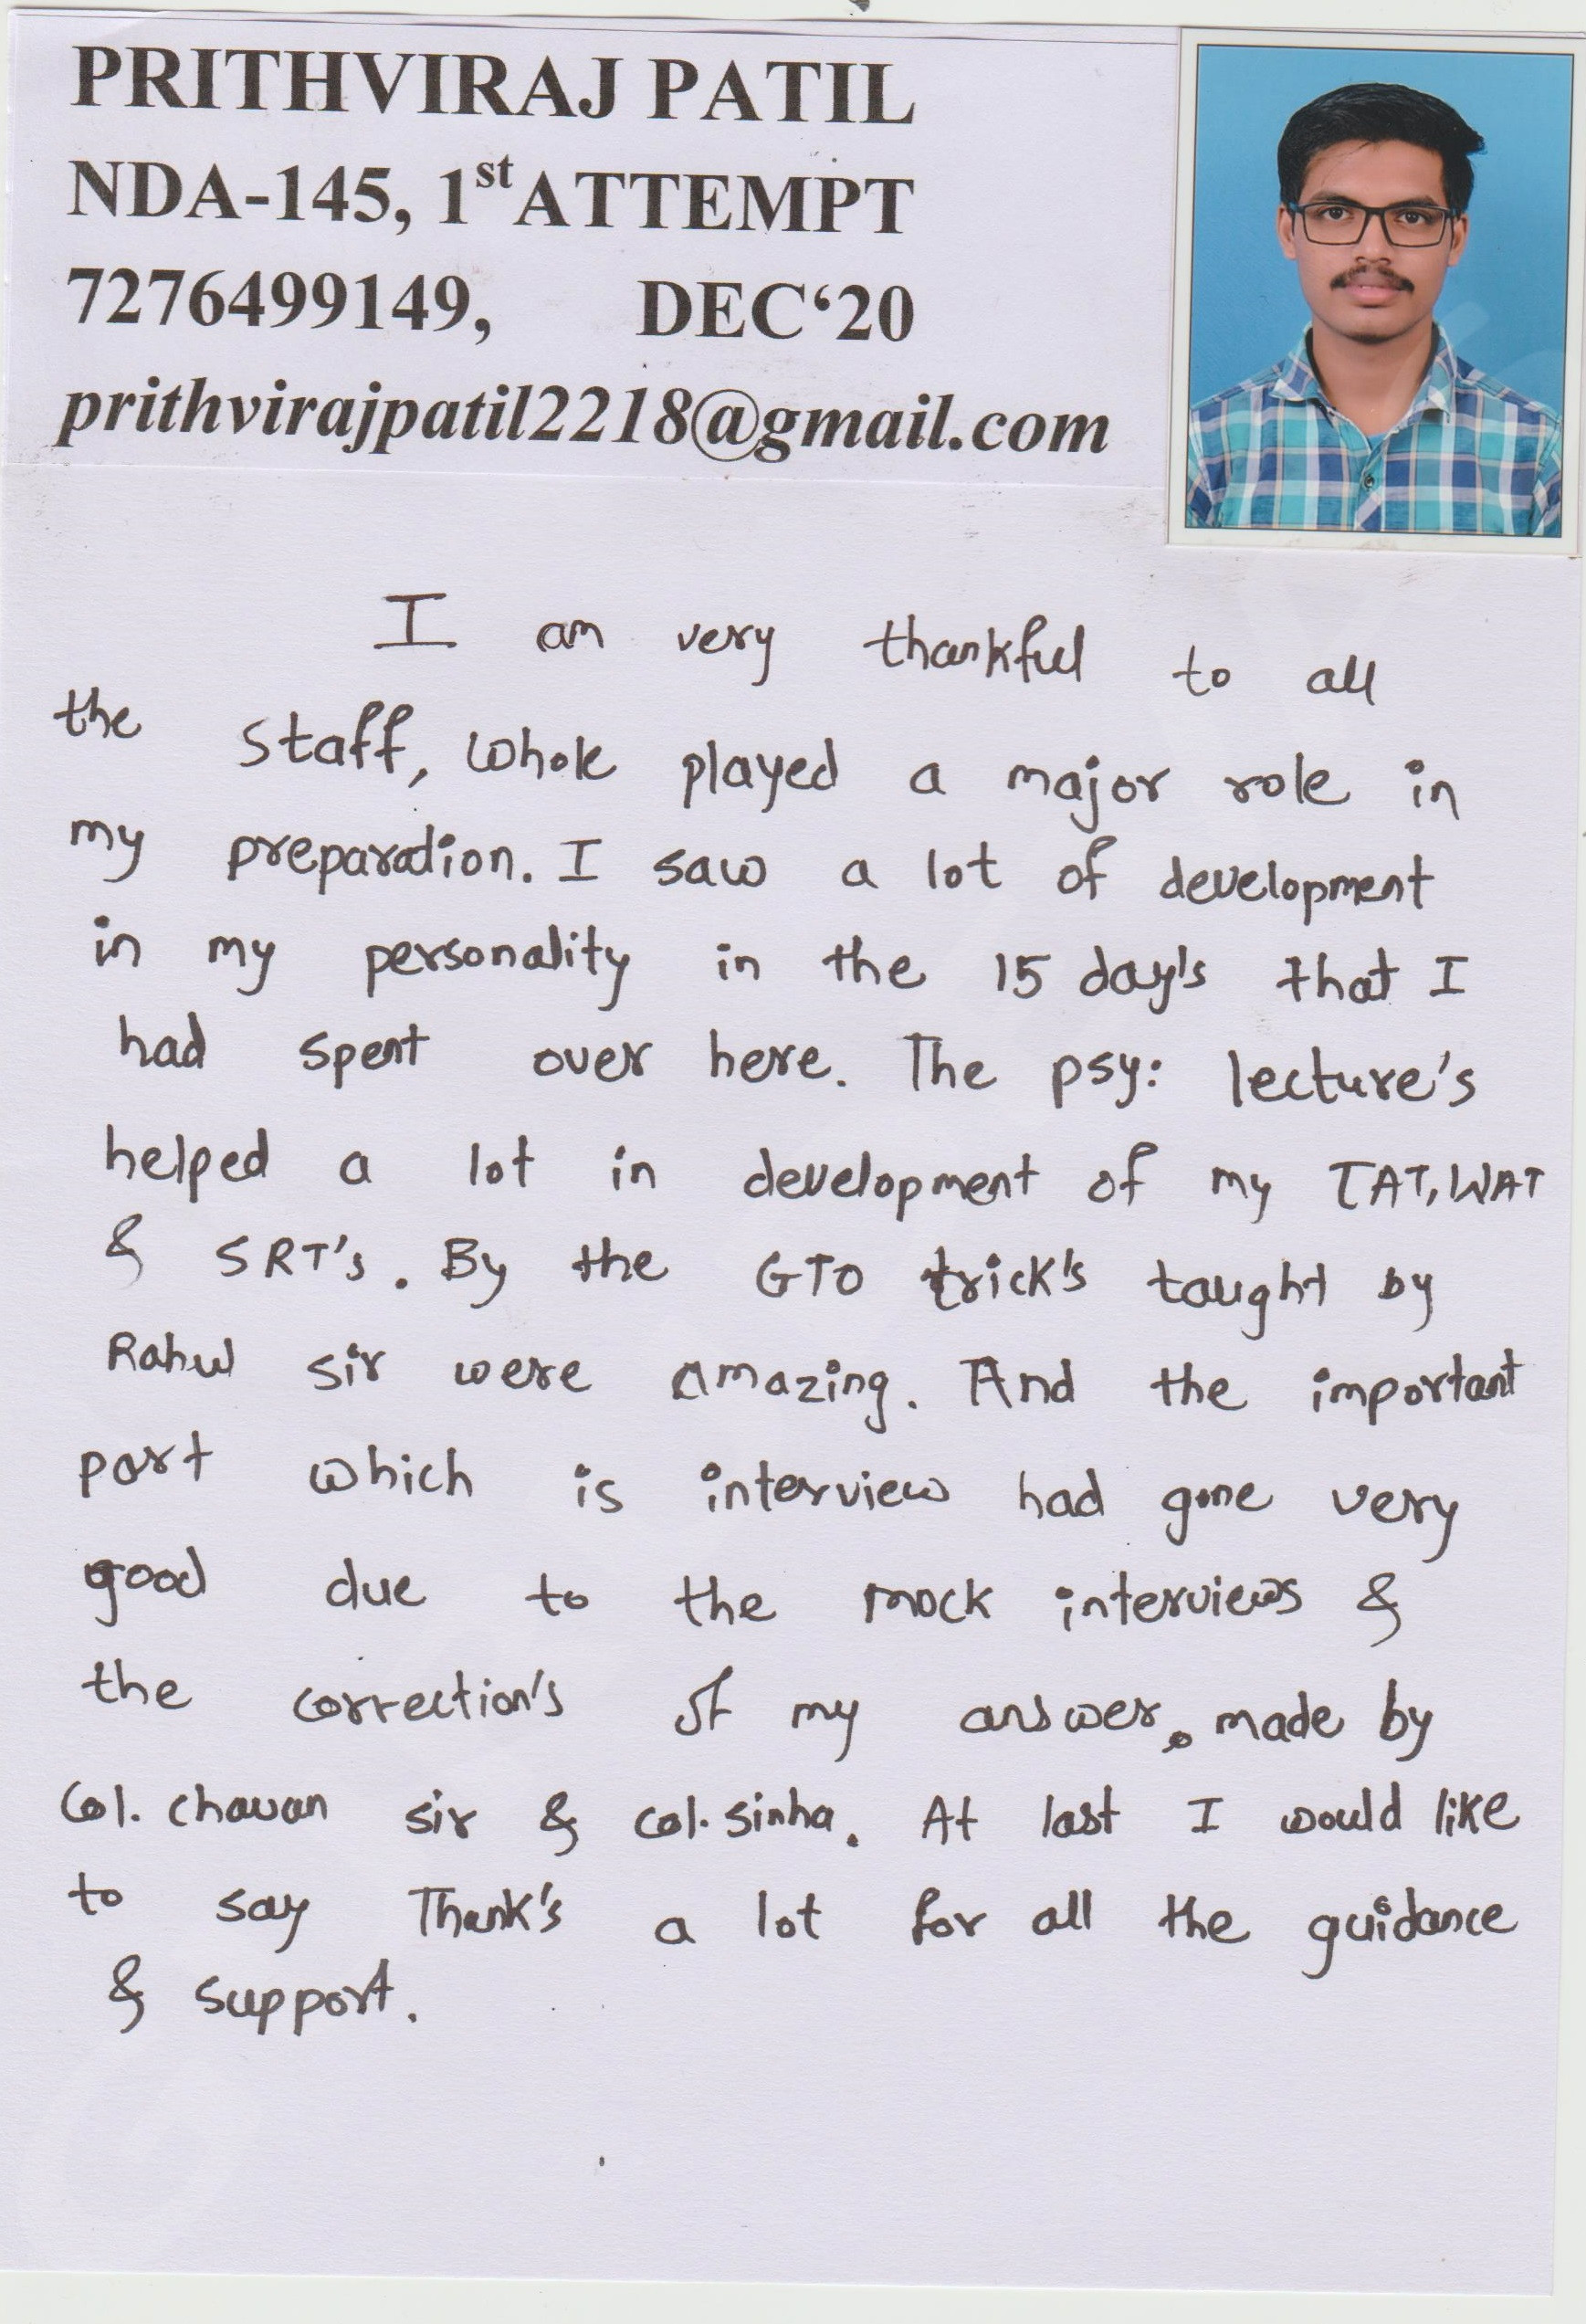 PRITHVIRAJ PATIL
NDA-145, 1st ATTEMPT
7276499149, DEC‘20
prithvirajpatil2218@gmail.com
I am very thankful to all
the staff, whole played a major role in
my preparation. I saw a lot of development
in my personality in the 15 day's that I
had spent over here. The psy: lecture's
helped a lot in development of my TAT, WAT
& SRT's. By the GTO trick's taught by
Rahul sir were amazing. And the important
part which is interview had gone very
good due to the mock interviews &
the correction's of my answer. made by
Col. chavan sir & col. sinha. At last I would like
to say Thank's a lot for all the guidance
& support.